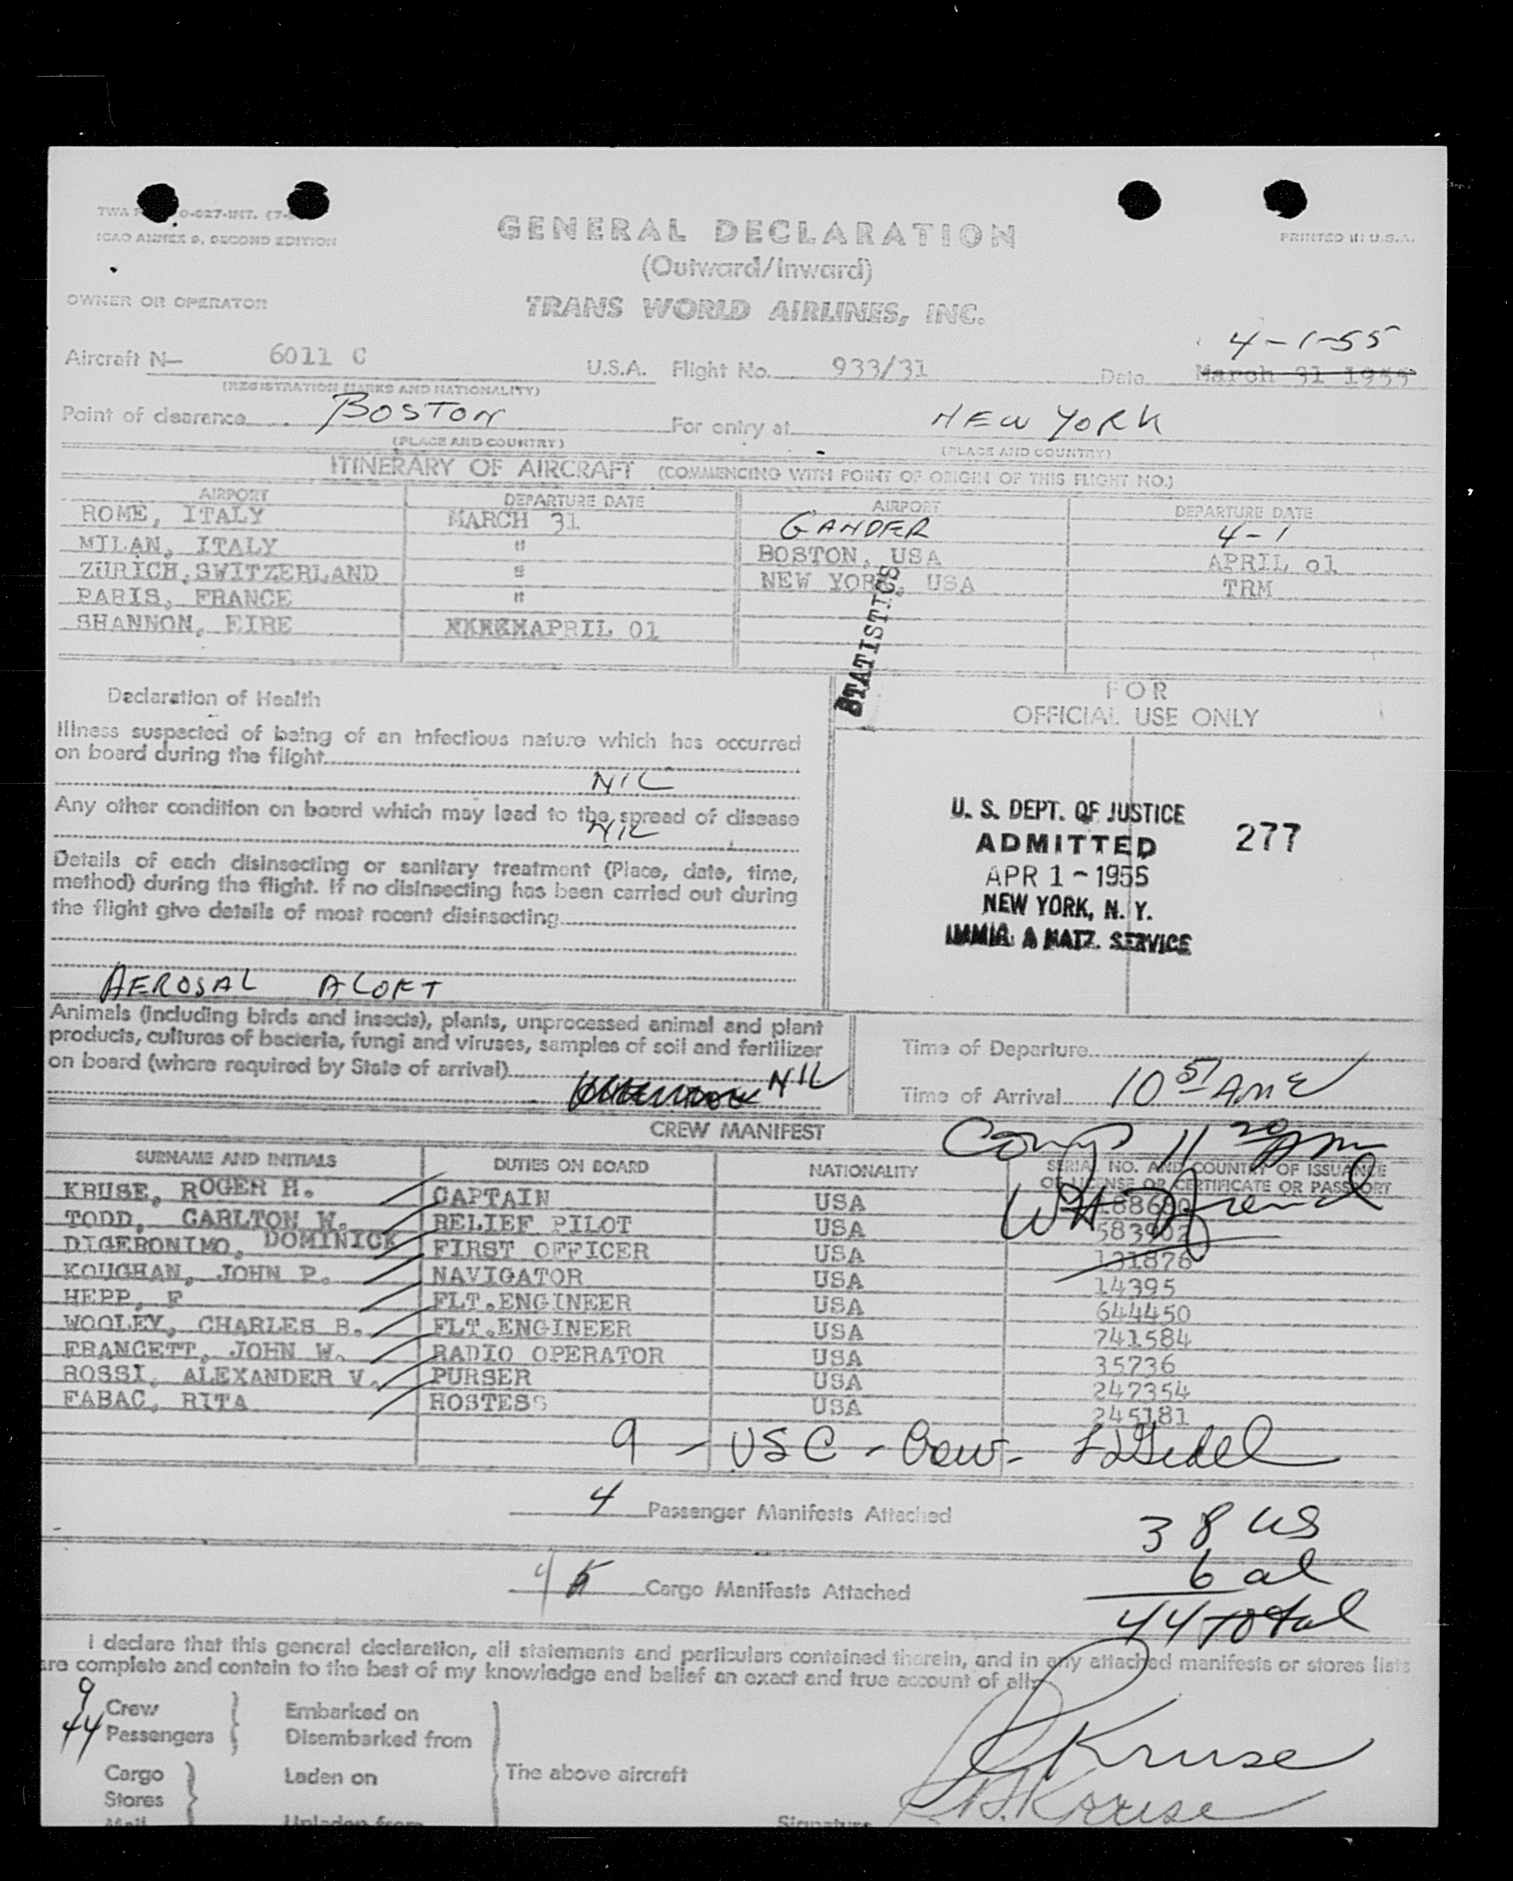 ICAO ANNEX 9, SECOND EDITION
GENERAL DECLARATION
PRINTED IN U.S.A.
(Outward/Inward)
OWNER OR OPERATOR
TRANS WORLD AIRLINES, INC.
4-1-55
Aircraft N— 6011 C U.S.A. Flight No. 933/31 Date March 31 1955
(REGISTRATION MARKS AND NATIONALITY)
Point of clearence BOSTON For entry at NEW YORK
(PLACE AND COUNTRY) (PLACE AND COUNTRY)
ITINERARY OF AIRCRAFT (COMMENCING WITH POINT OF ORIGIN OF THIS FLIGHT NO.)
AIRPORT DEPARTURE DATE AIRPORT DEPARTURE DATE
ROME, ITALY MARCH 31 GANDER 4-1
MILAN, ITALY " BOSTON, USA APRIL 01
ZURICH, SWITZERLAND " NEW YORK, USA TRM
PARIS, FRANCE "
SHANNON, EIRE APRIL 01
STATISTICS
Declaration of Health
FOR
OFFICIAL USE ONLY
Illness suspected of being of an infectious nature which has occurred
on board during the flight
NIL
Any other condition on board which may lead to the spread of disease
NIL
Details of each disinsecting or sanitary treatment (Place, date, time,
method) during the flight. If no disinsecting has been carried out during
the flight give details of most recent disinsecting
AEROSAL ALOFT
U. S. DEPT. OF JUSTICE
ADMITTED 277
APR 1 - 1955
NEW YORK, N. Y.
IMMIG. & NATZ. SERVICE
Animals (including birds and insects), plants, unprocessed animal and plant
products, cultures of bacteria, fungi and viruses, samples of soil and fertilizer
on board (where required by State of arrival)
NIL
Time of Departure
Time of Arrival 10 51 AM E
11 20 AM
CREW MANIFEST
SURNAME AND INITIALS DUTIES ON BOARD NATIONALITY SERIAL NO. AND COUNTRY OF ISSUANCE
OF LICENSE OR CERTIFICATE OR PASSPORT
KRUSE, ROGER H. CAPTAIN USA
TODD, CARLTON W. RELIEF PILOT USA 583902
DIGERONIMO, DOMINICK FIRST OFFICER USA 131876
KOUGHAN, JOHN P. NAVIGATOR USA 14395
HEPP, F FLT.ENGINEER USA 644450
WOOLEY, CHARLES B. FLT.ENGINEER USA 741584
FRANCETT, JOHN W. RADIO OPERATOR USA 35736
ROSSI, ALEXANDER V. PURSER USA 247354
FABAC, RITA HOSTESS USA 245181
9 - USC - Crew -
4 Passenger Manifests Attached
38 US
6 al
44 Total
4 Cargo Manifests Attached
I declare that this general declaration, all statements and particulars contained therein, and in any attached manifests or stores lists
are complete and contain to the best of my knowledge and belief an exact and true account of all:
9 Crew Embarked on
44 Passengers Disembarked from
Cargo Laden on The above aircraft
Stores
Mail Unladen from Signature
Kruse
R.H. Kruse